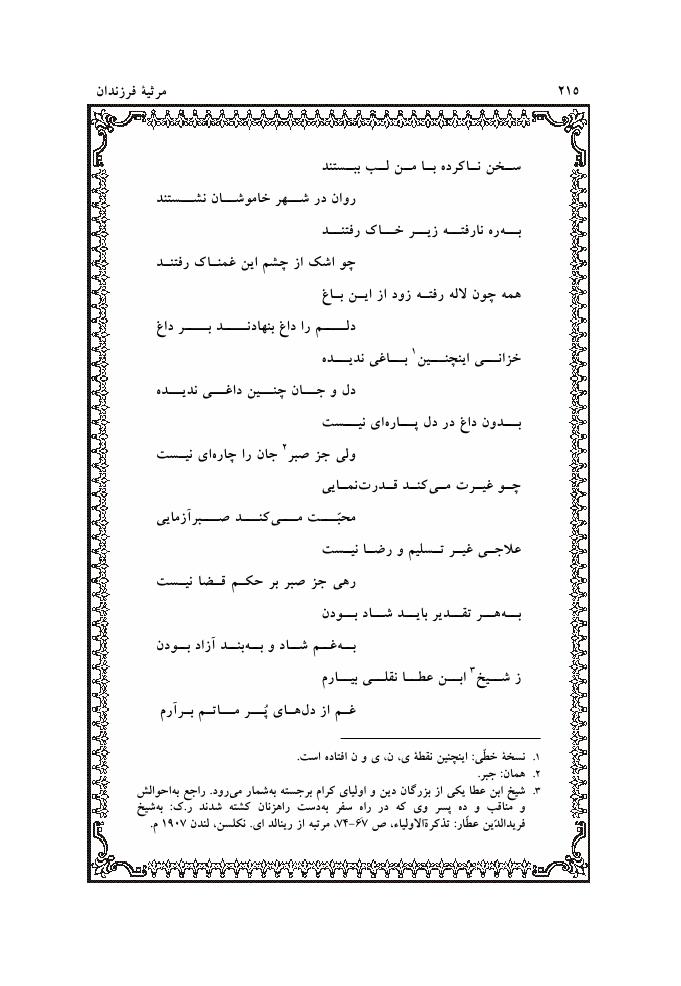 ۲۱۵
مرثیهٔ فرزندان
سخن ناکرده با من لب ببستند
روان در شهر خاموشان نشستند
به‌ره نارفته زیر خاک رفتند
چو اشک از چشم این غمناک رفتند
همه چون لاله رفته زود از این باغ
دلم را داغ بنهادند بر داغ
خزانی اینچنین۱ باغی ندیده
دل و جان چنین داغی ندیده
بدون داغ در دل پاره‌ای نیست
ولی جز صبر۲ جان را چاره‌ای نیست
چو غیرت می‌کند قدرت‌نمایی
محبّت می‌کند صبرآزمایی
علاجی غیر تسلیم و رضا نیست
رهی جز صبر بر حکم قضا نیست
به‌هر تقدیر باید شاد بودن
به‌غم شاد و به‌بند آزاد بودن
ز شیخ۳ ابن عطا نقلی بیارم
غم از دل‌های پُر ماتم برآرم
۱. نسخهٔ خطّی: اینچنین نقطهٔ ی، ن، ی و ن افتاده است.
۲. همان: جبر.
۳. شیخ ابن عطا یکی از بزرگان دین و اولیای کرام برجسته به‌شمار می‌رود. راجع به‌احوالش
و مناقب و ده پسر وی که در راه سفر به‌دست راهزنان کشته شدند ر.ک: به‌شیخ
فریدالدّین عطّار: تذکرةالاولیاء، ص ۶۷-۷۴، مرتبه از رینالد ای. نکلسن، لندن ۱۹۰۷ م.